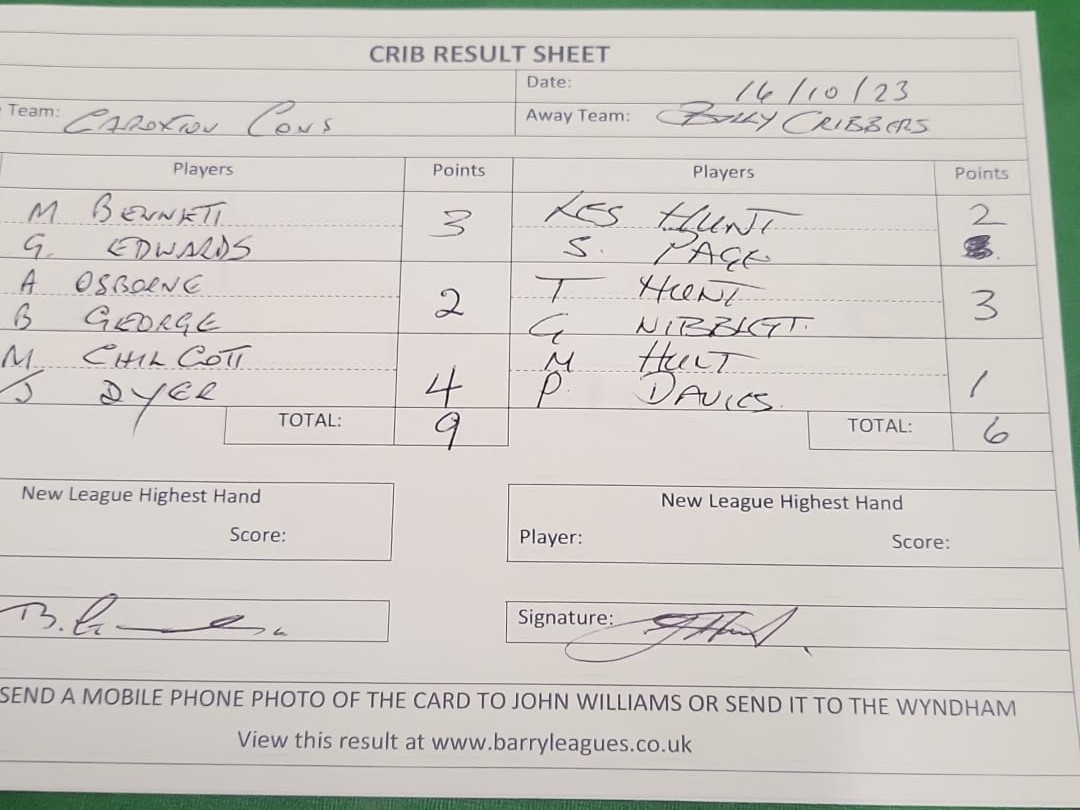 CRIB RESULT SHEET
Date: 16/10/23
Team: CADOXTON CONS
Away Team: BILLY CRIBBERS
Players Points Players Points
M BENNETT 3 LES HUNT 2
G. EDWARDS S. PAGE
A OSBORNE 2 T HUNT 3
B GEORGE G NIBBLET.
M CHILCOTT M HUNT
J DYER 4 P. DAVIES. 1
TOTAL: 9 TOTAL: 6
New League Highest Hand New League Highest Hand
Score: Player: Score:
Signature:
SEND A MOBILE PHONE PHOTO OF THE CARD TO JOHN WILLIAMS OR SEND IT TO THE WYNDHAM
View this result at www.barryleagues.co.uk